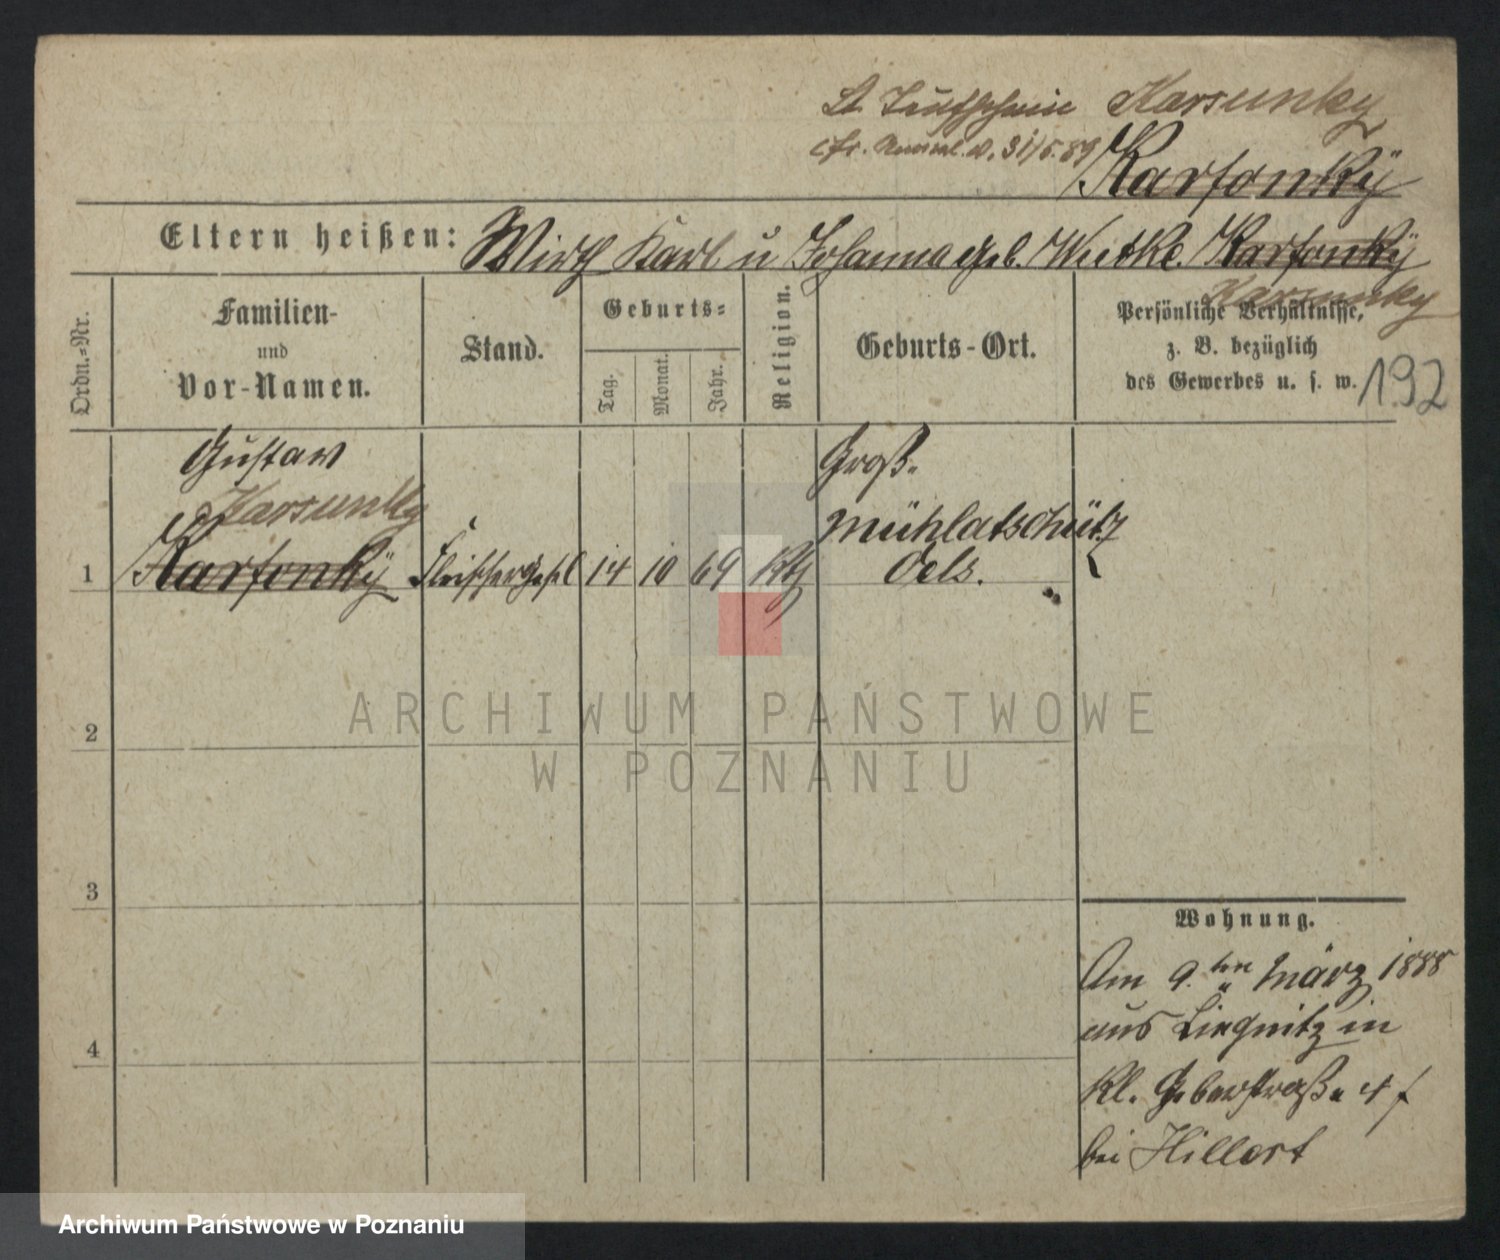 Lt. Taufschein Karsunky
cfr. Anmel. v. 31/5.89
Karsonkÿ
Eltern heißen: Wirth Karl u Johanna geb. Wietke. Karsonkÿ
Karsunky
Ordn.-Nr.
Familien-
und
Vor-Namen.
Stand.
Geburts-
Tag.
Monat.
Jahr.
Religion.
Geburts-Ort.
Persönliche Verhältnisse,
z. B. bezüglich
des Gewerbes u. s. w.
192
1
Gustav
Karsunky
Karsonkÿ
Fleischergesel
14
10
69
Kth
Groß-
mühlatschütz
Oels.
2
3
4
Wohnung.
Am 9.ten März 1888
aus Liegnitz in
Kl. Geberstraße 4
bei Hillert
ARCHIWUM PAŃSTWOWE
W POZNANIU
Archiwum Państwowe w Poznaniu